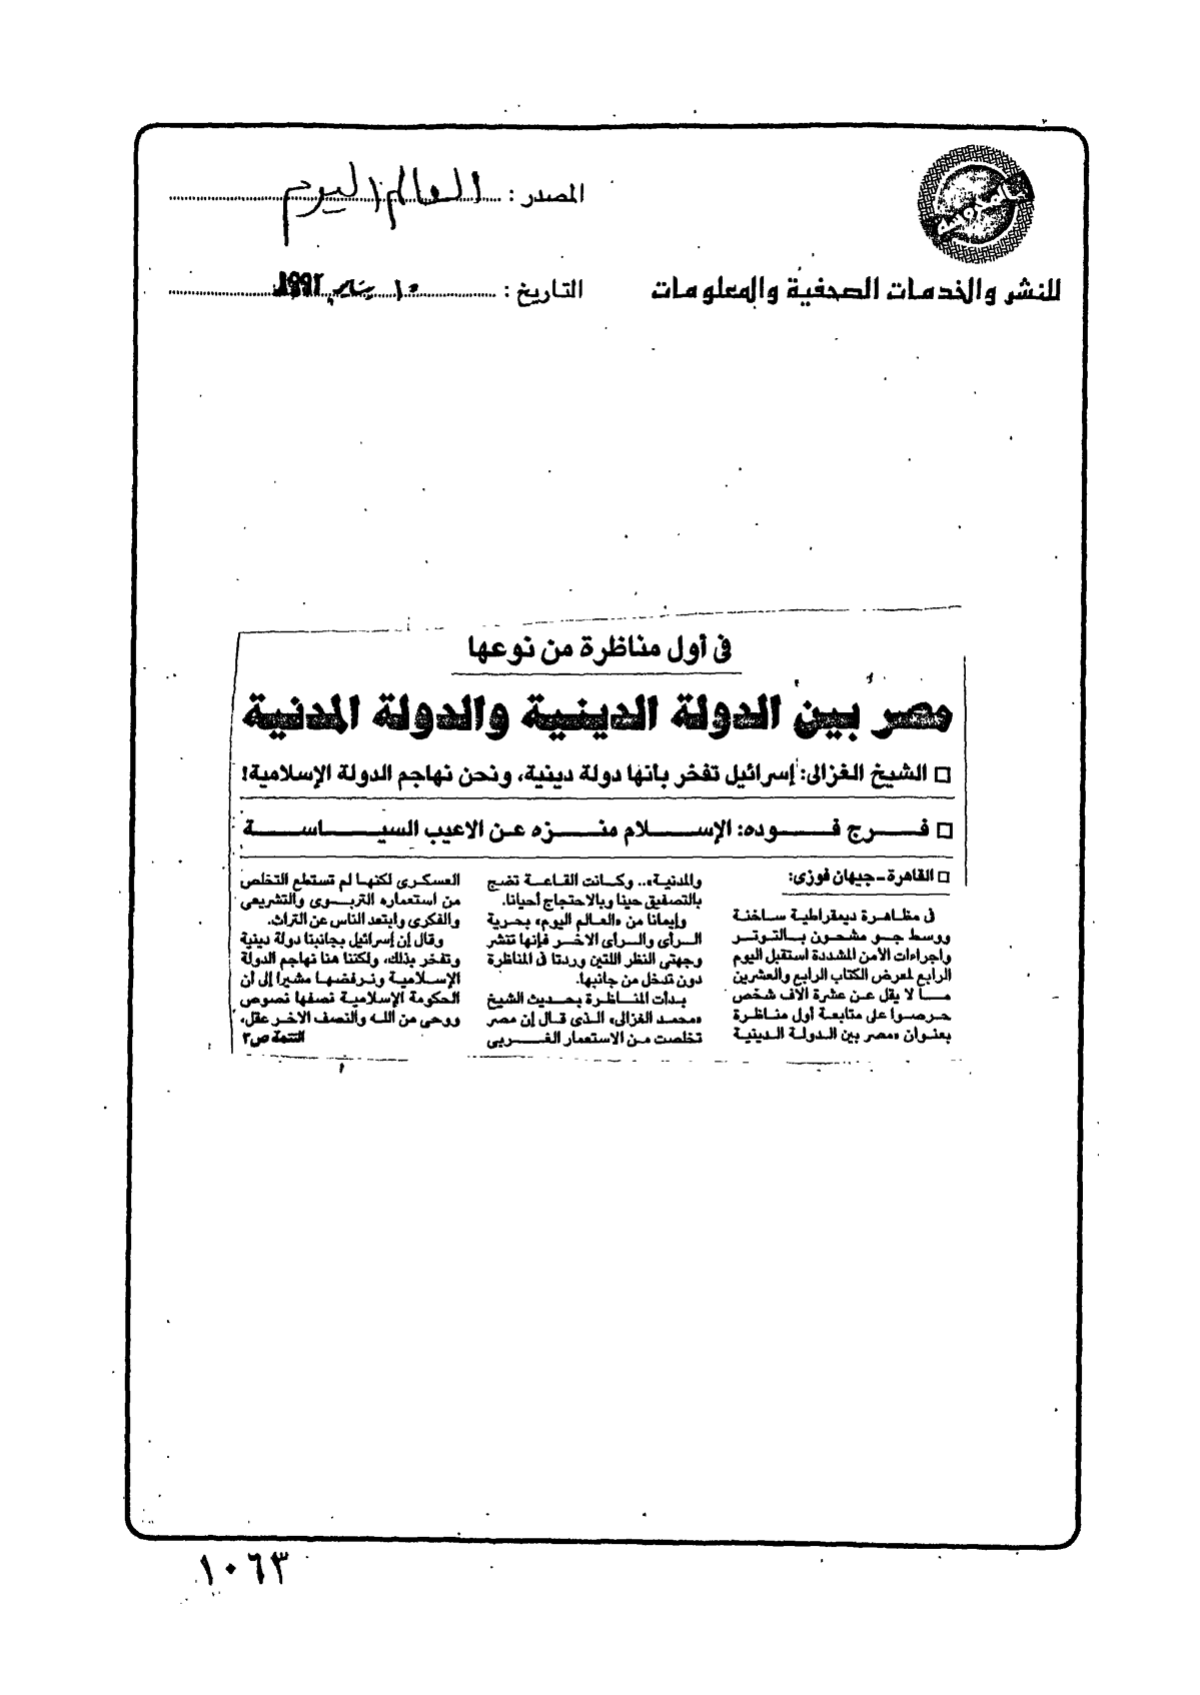 المصدر : العالم اليوم
للنشر والخدمات الصحفية والمعلومات
التاريخ : ١٠ يناير ١٩٩٢
فى أول مناظرة من نوعها
مصر بين الدولة الدينية والدولة المدنية
□ الشيخ الغزالى: إسرائيل تفخر بأنها دولة دينية، ونحن نهاجم الدولة الإسلامية!
□ فرج فوده: الإسلام منزه عن الاعيب السياسة
□ القاهرة - جيهان فوزى:
فى مظاهرة ديمقراطية ساخنة
ووسط جو مشحون بالتوتر
واجراءات الأمن المشددة استقبل اليوم
الرابع لمعرض الكتاب الرابع والعشرين
ما لا يقل عن عشرة الاف شخص
حرصوا على متابعة أول مناظرة
بعنوان «مصر بين الدولة الدينية
والمدنية».. وكانت القاعة تضج
بالتصفيق حينا وبالاحتجاج أحيانا.
وإيمانا من «العالم اليوم» بحرية
الرأى والرأى الاخر فإنها تنشر
وجهتى النظر اللتين وردتا فى المناظرة
دون تدخل من جانبها.
بدأت المناظرة بحديث الشيخ
«محمد الغزالى» الذى قال إن مصر
تخلصت من الاستعمار الغربى
العسكرى لكنها لم تستطع التخلص
من استعماره التربوى والتشريعى
والفكرى وابتعد الناس عن التراث.
وقال إن إسرائيل بجانبنا دولة دينية
وتفخر بذلك، ولكننا هنا نهاجم الدولة
الإسلامية ونرفضها مشيرا إلى أن
الحكومة الإسلامية نصفها نصوص
ووحى من الله والنصف الاخر عقل،
التتمة ص٢
١٠٦٣